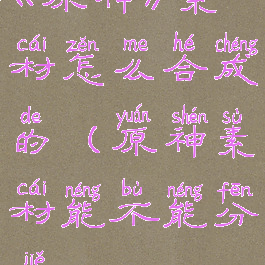 《原神》素
cái zěn me hé chéng
材怎么合成
de yuán shén sù
的(原神素
cái néng bù néng fēn
材能不能分
jiě